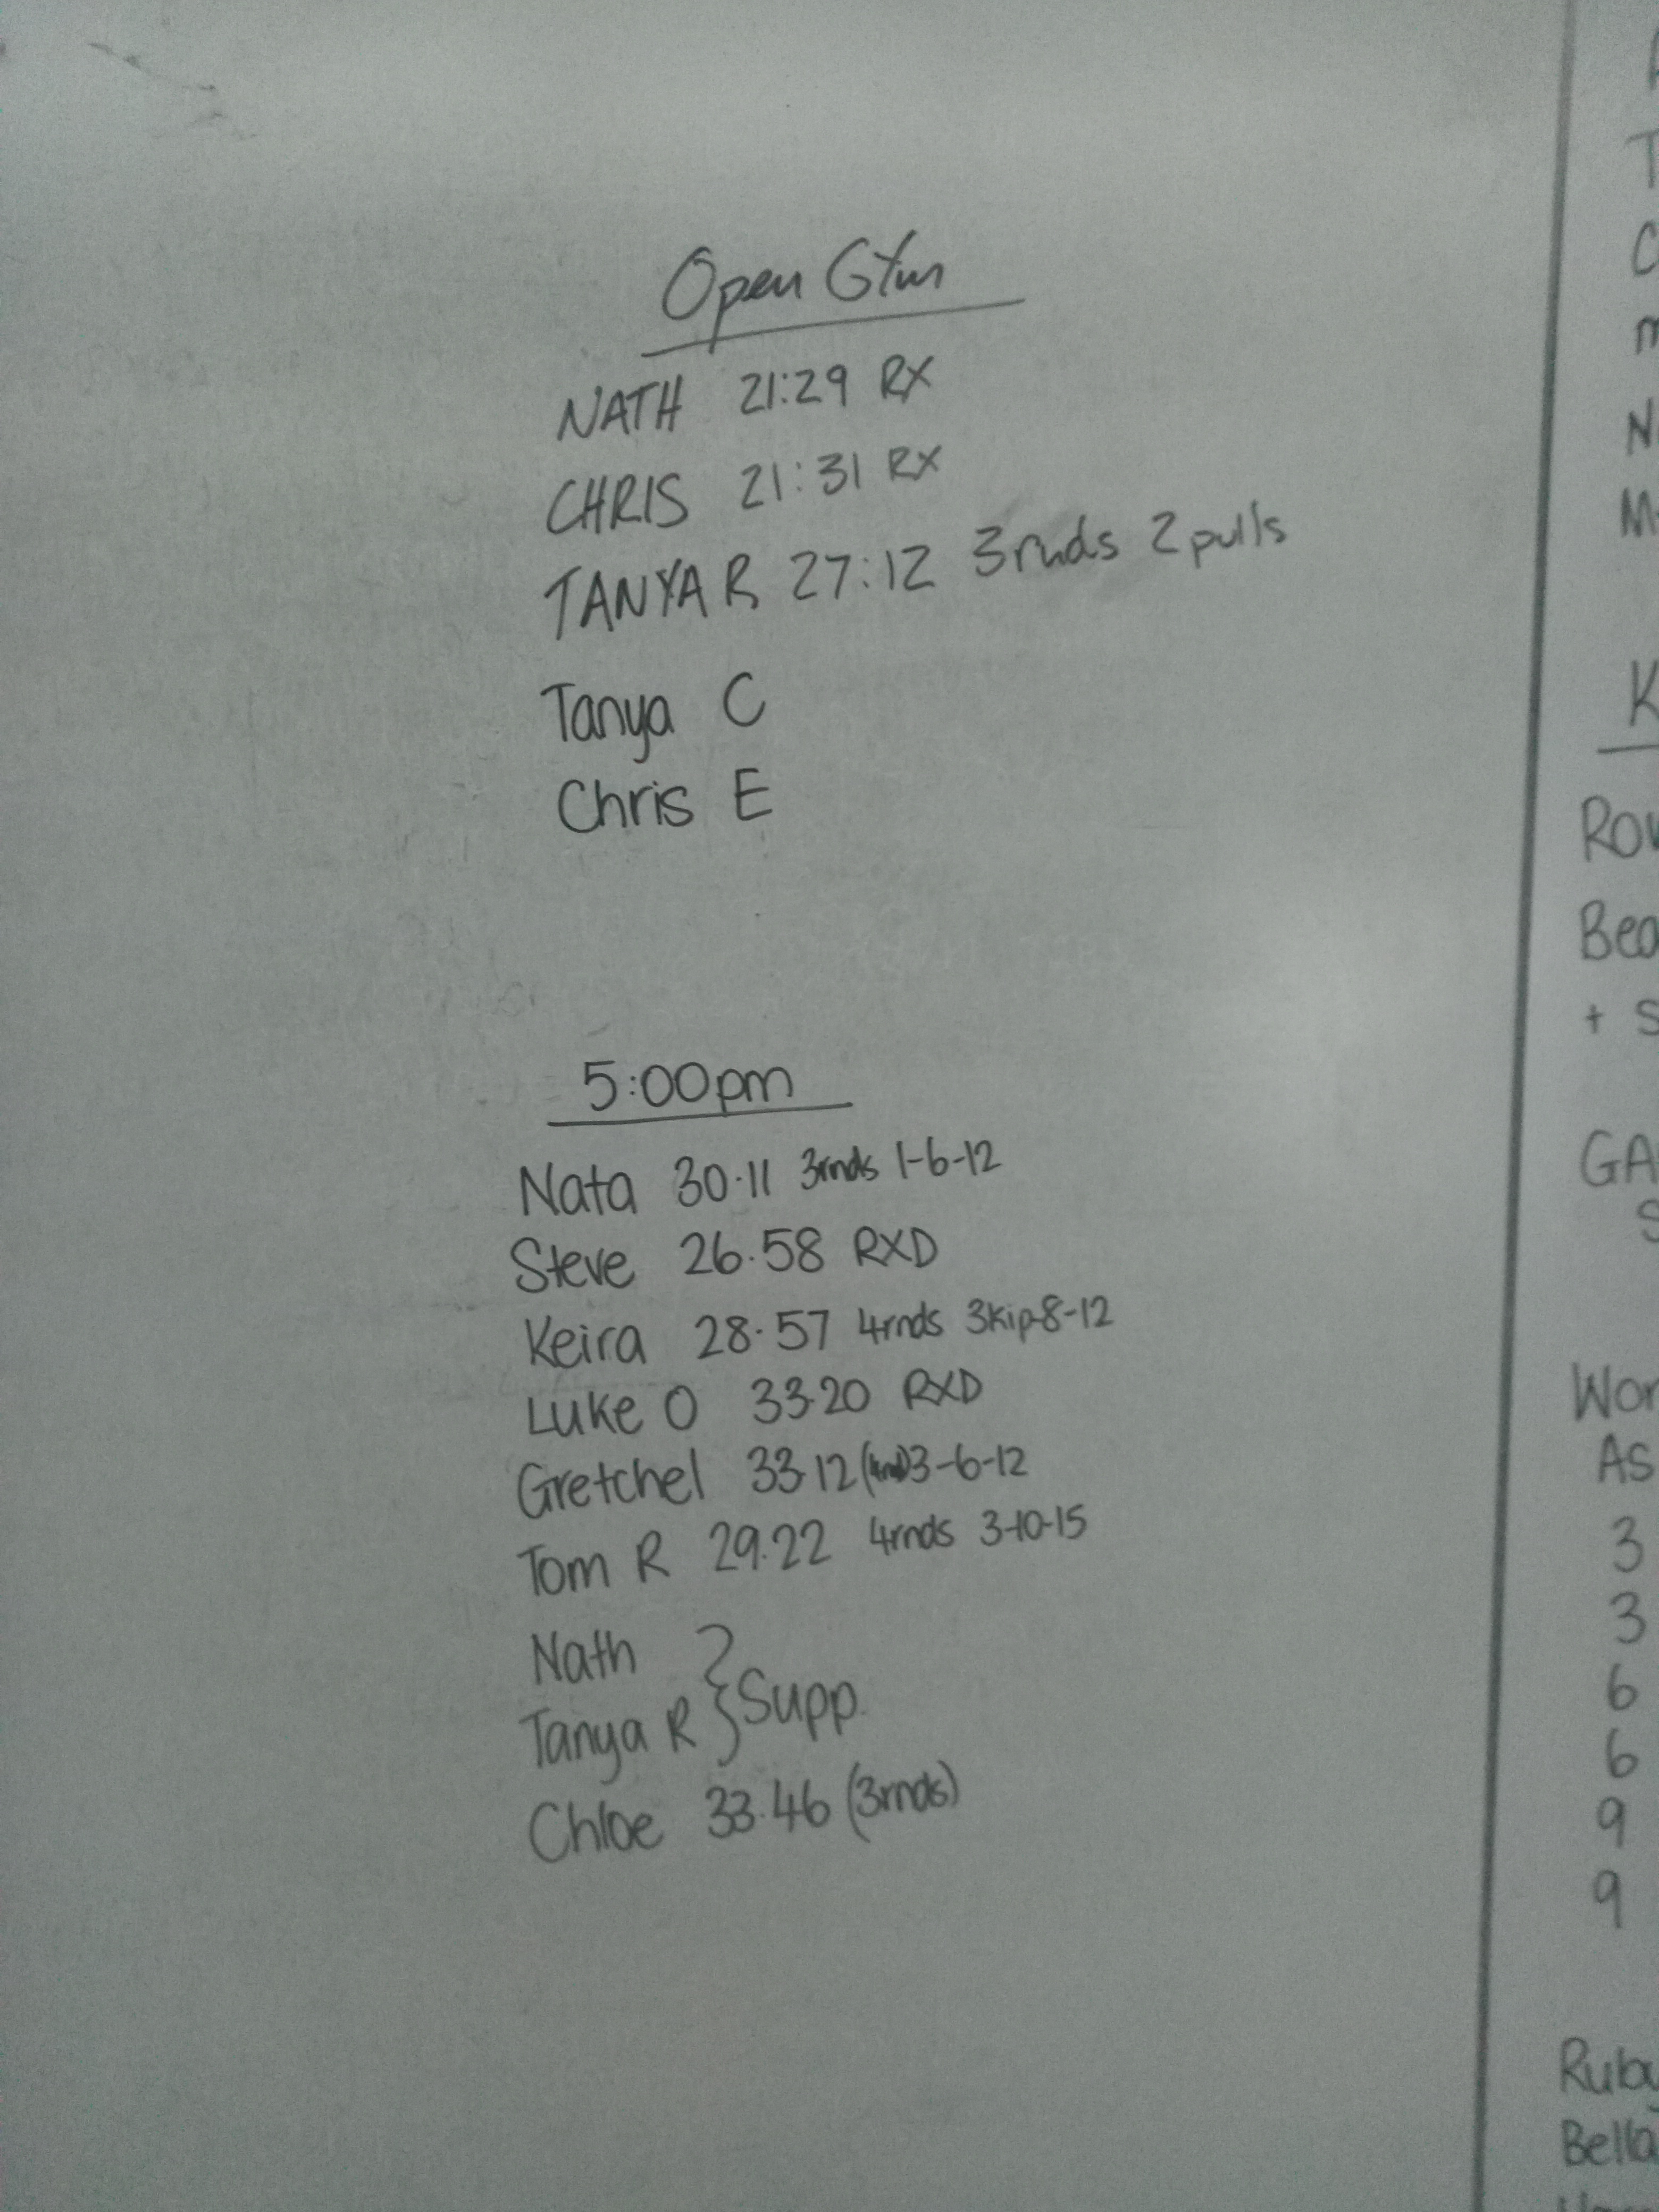 Open Gym
NATH 21:29 RX
CHRIS 21:31 RX
TANYA R 27:12 3rnds 2 pulls
Tanya C
Chris E
5:00pm
Nata 30.11 3rnds 1-6-12
Steve 26.58 RXD
Keira 28.57 4rnds 3kip-8-12
Luke O 33.20 RXD
Gretchel 33.12 3-6-12
Tom R 29.22 4rnds 3-10-15
Nath
Tanya R } Supp.
Chloe 33.46 (3rnds)
K
+ S
GA
S
As
3
3
6
6
9
9
Ruby
Bella